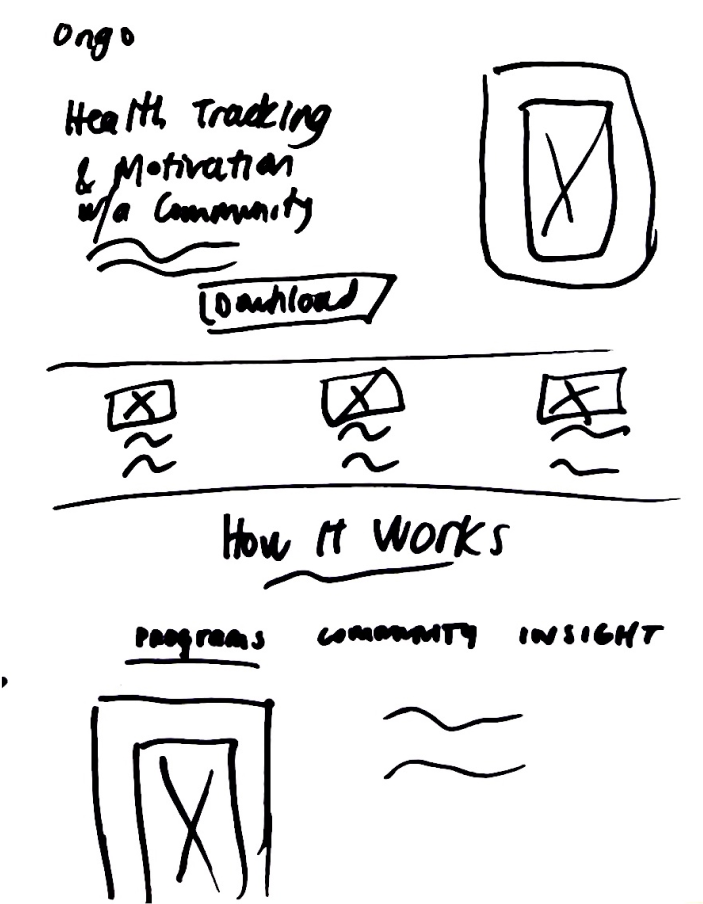 Ongo
Health Tracking
& Motivation
w/a Community
Download
How It Works
PROGRAMS COMMUNITY INSIGHT